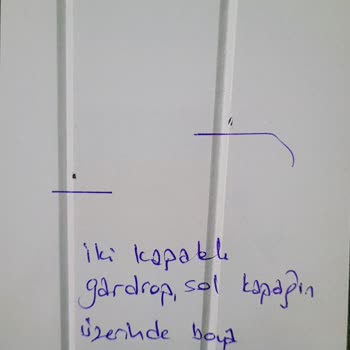 iki kapaklı
gardrop, sol kapağın
üzerinde boya